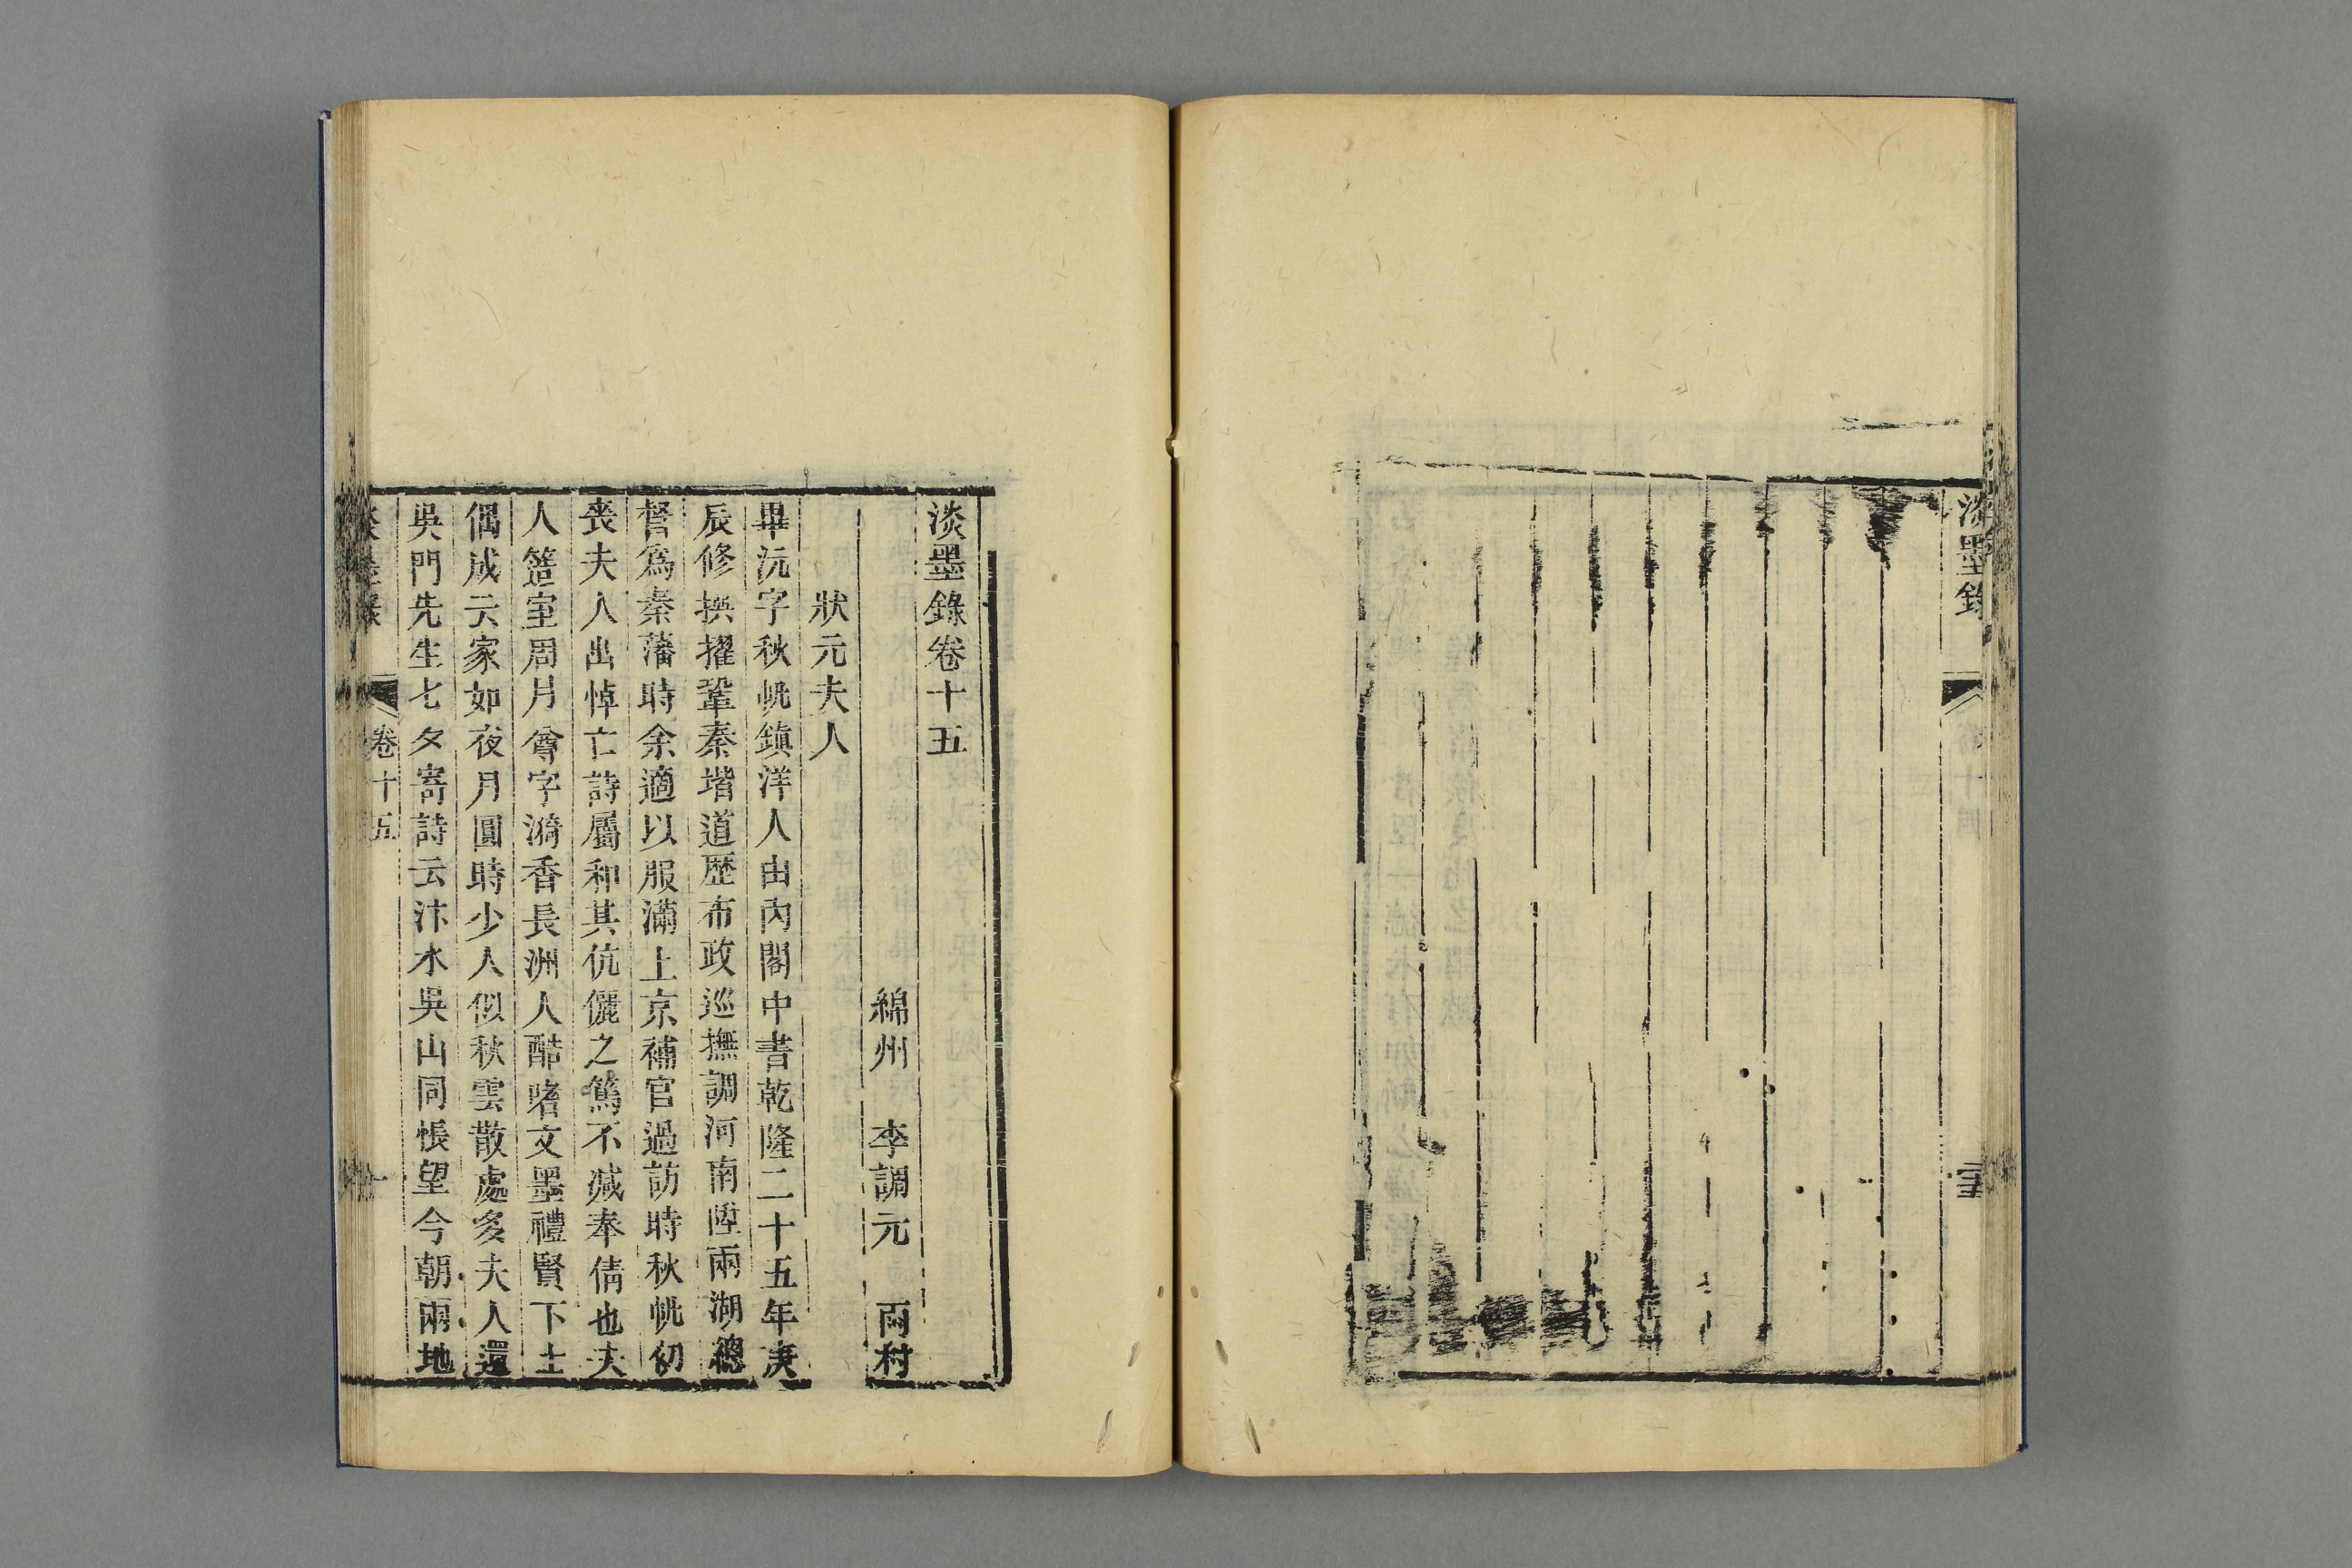 淡墨錄
淡墨錄卷十五
綿州 李調元 雨村
狀元夫人
畢沅字秋帆鎮洋人由內閣中書乾隆二十五年庚
辰修撰擢鞏秦堦道歷布政巡撫調河南陞兩湖總
督爲秦藩時余適以服滿上京補官過訪時秋帆初
喪夫人出悼亡詩屬和其伉儷之篤不減奉倩也夫
人簉室周月尊字漪香長洲人酷嗜文墨禮賢下士
偶成云家如夜月圓時少人似秋雲散處多夫人還
吳門先生七夕寄詩云汴水吳山同悵望今朝兩地
卷十五